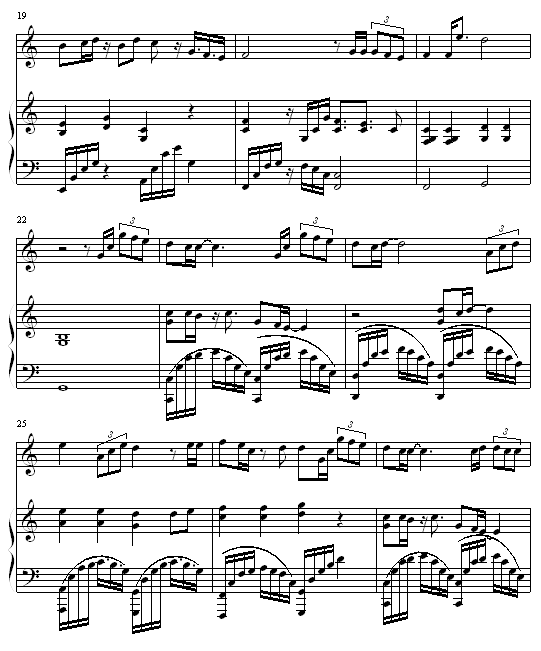 19
3
22
3
3
3
25
3
3
3